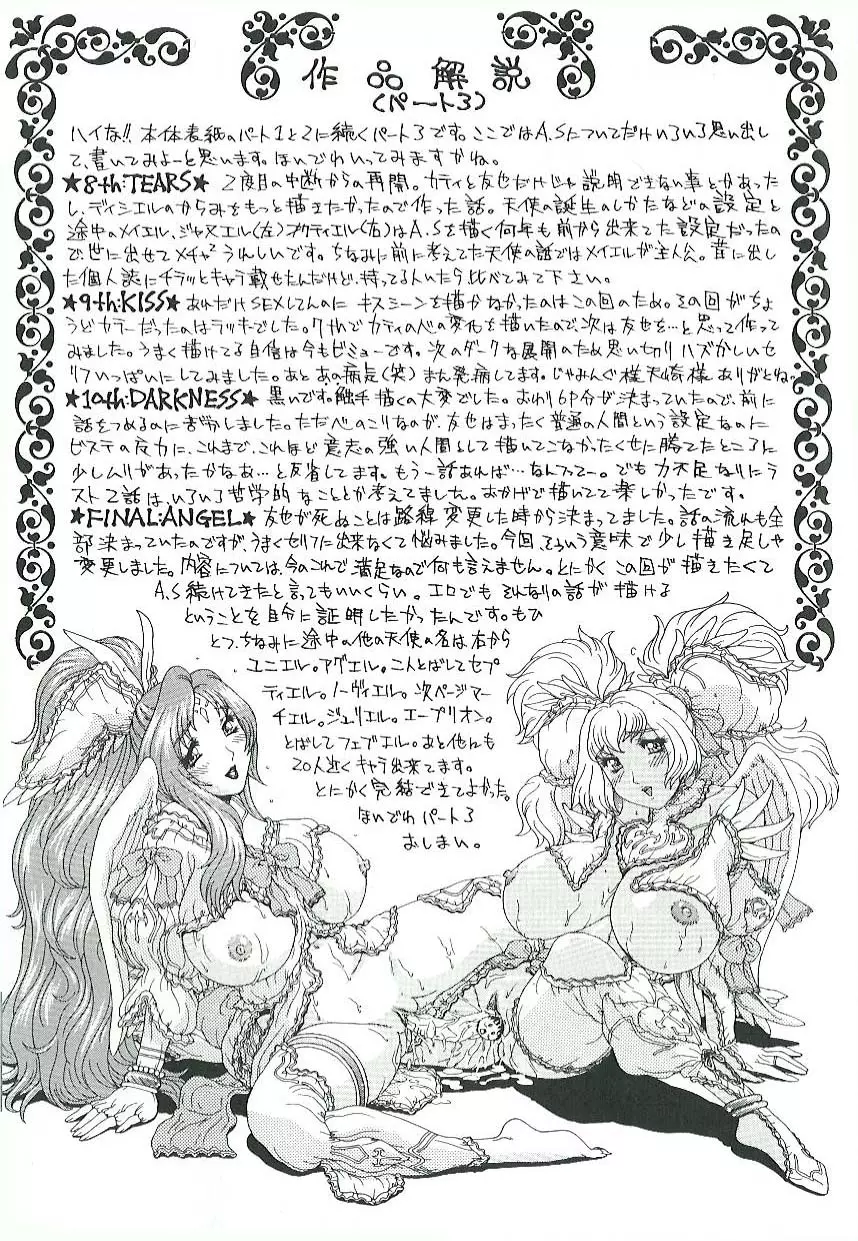 作品解説
(パート3)
ハイな!! 本体表紙のパート1と2に続くパート3です。ここではA.Sについてだけいろいろ思い出し
て、書いてみよーと思います。ほいでわいってみますかね。
★8th:TEARS★ 2度目の中断からの再開。カティと友也だけじゃ説明できない事とかあった
し、ディシエルのからみをもっと描きたかったので作った話。天使の誕生のしかたなどの設定と
途中のメイエル、ジャヌエル(左)オクティエル(右)はA.Sを描く何年も前から出来てた設定だったの
で、世に出せてメチャ²うれしいです。ちなみに前に考えてた天使の話ではメイエルが主人公。昔に出し
た個人誌にチラッとキャラ載せたんだけど、持ってる人いたら比べてみて下さい。
★9th:KISS★ あれだけSEXしてんのに キスシーンを描かなかったのはこの回のため。その回がちょ
うどカラーだったのはラッキーでした。7thでカティの心の変化を描いたので、次は友也を…と思って作って
みました。うまく描けてる自信は今もビミョーです。次のダークな展開のため思い切りハズかしいセ
リフいっぱいにしてみました。あと あの病気(笑)まん発病してます。じゃみんぐ様天崎様ありがとね
★10th:DARKNESS★ 黒いです。触手描くの大変でした。おわり6P分が決まっていたので、前に
話をつめるのに苦労しました。ただ心のこりなのが、友也はまったく普通の人間という設定なのに
ビステの反力に、これまで、これほど意志の強い人間として描いてこなかったくせに勝てたところに
少しムリがあったかなあ…と反省してます。もう一話あれば…なんつってー。でも力不足なりにラ
スト2話は、いろいろ哲学的なこととか考えてました。おかげで描いてて楽しかったです。
★FINAL:ANGEL★ 友也が死ぬことは路線変更した時から決まってました。話の流れも全
部決まっていたのですが、うまくセリフに出来なくて悩みました。今回、そういう意味で少し描き足しや
変更しました。内容については、今のこれで満足なので何も言えません。とにかくこの回が描きたくて
A.S続けてきたと言ってもいいくらい。エロでもそれなりの話が描ける
ということを自分に証明したかったんです。もひ
とつ、ちなみに途中の他の天使の名は右から
ユニエル。アグエル。二人とばしてセプ
ティエル。ノーヴィエル。次ページマー
チエル。ジュリエル。エープリオン。
とばしてフェブエル。あと他にも
20人近くキャラ出来てます。
とにかく完結できてよかった。
ほいでわパート3
おしまい。